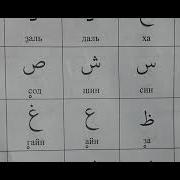 заль даль ха
ص ش س
с̥од шин син
غ ع ظ
г̥айн а̥йн з̥а